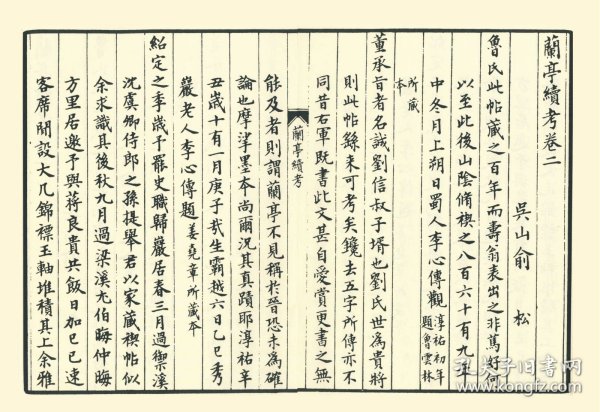 蘭亭續考卷二
吳山俞　松
魯氏此帖藏之百年而壽翁表出之非篤好何
以至此後山陰脩禊之八百六十有九年
中冬月上朔日蜀人李心傳觀淳祐初年題魯雲林
所藏本
董承旨者名誠劉信叔子壻也劉氏世為貴將
則此帖繇来可考矣鐫去五字所傳亦不
同昔右軍既書此文甚自愛賞更書之無
蘭亭續考
能及者則謂蘭亭不見稱於晉恐未為確
論也摩挲墨本尚爾況其真蹟耶淳祐辛
丑歲十有一月庚子哉生霸越六日乙巳秀
巖老人李心傳題姜堯章所藏本
紹定之季歲予罷史職歸巖居春三月過禦溪
沈虞卿侍郎之孫提舉君以家藏禊帖似
余求識其後秋九月過梁溪尤伯晦仲晦
方里居邀予與蔣良貴共飯日加巳已速
客席閒設大几錦標玉軸堆積其上余雅
孔夫子旧书网